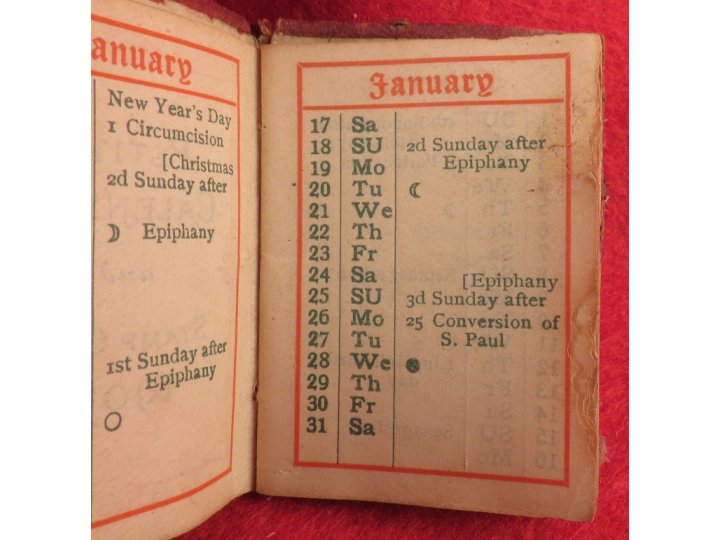 anuary
New Year's Day
1 Circumcision
[Christmas
2d Sunday after
Epiphany
1st Sunday after
Epiphany
January
17 Sa
18 SU 2d Sunday after
19 Mo Epiphany
20 Tu
21 We
22 Th
23 Fr
24 Sa [Epiphany
25 SU 3d Sunday after
26 Mo 25 Conversion of
27 Tu S. Paul
28 We
29 Th
30 Fr
31 Sa